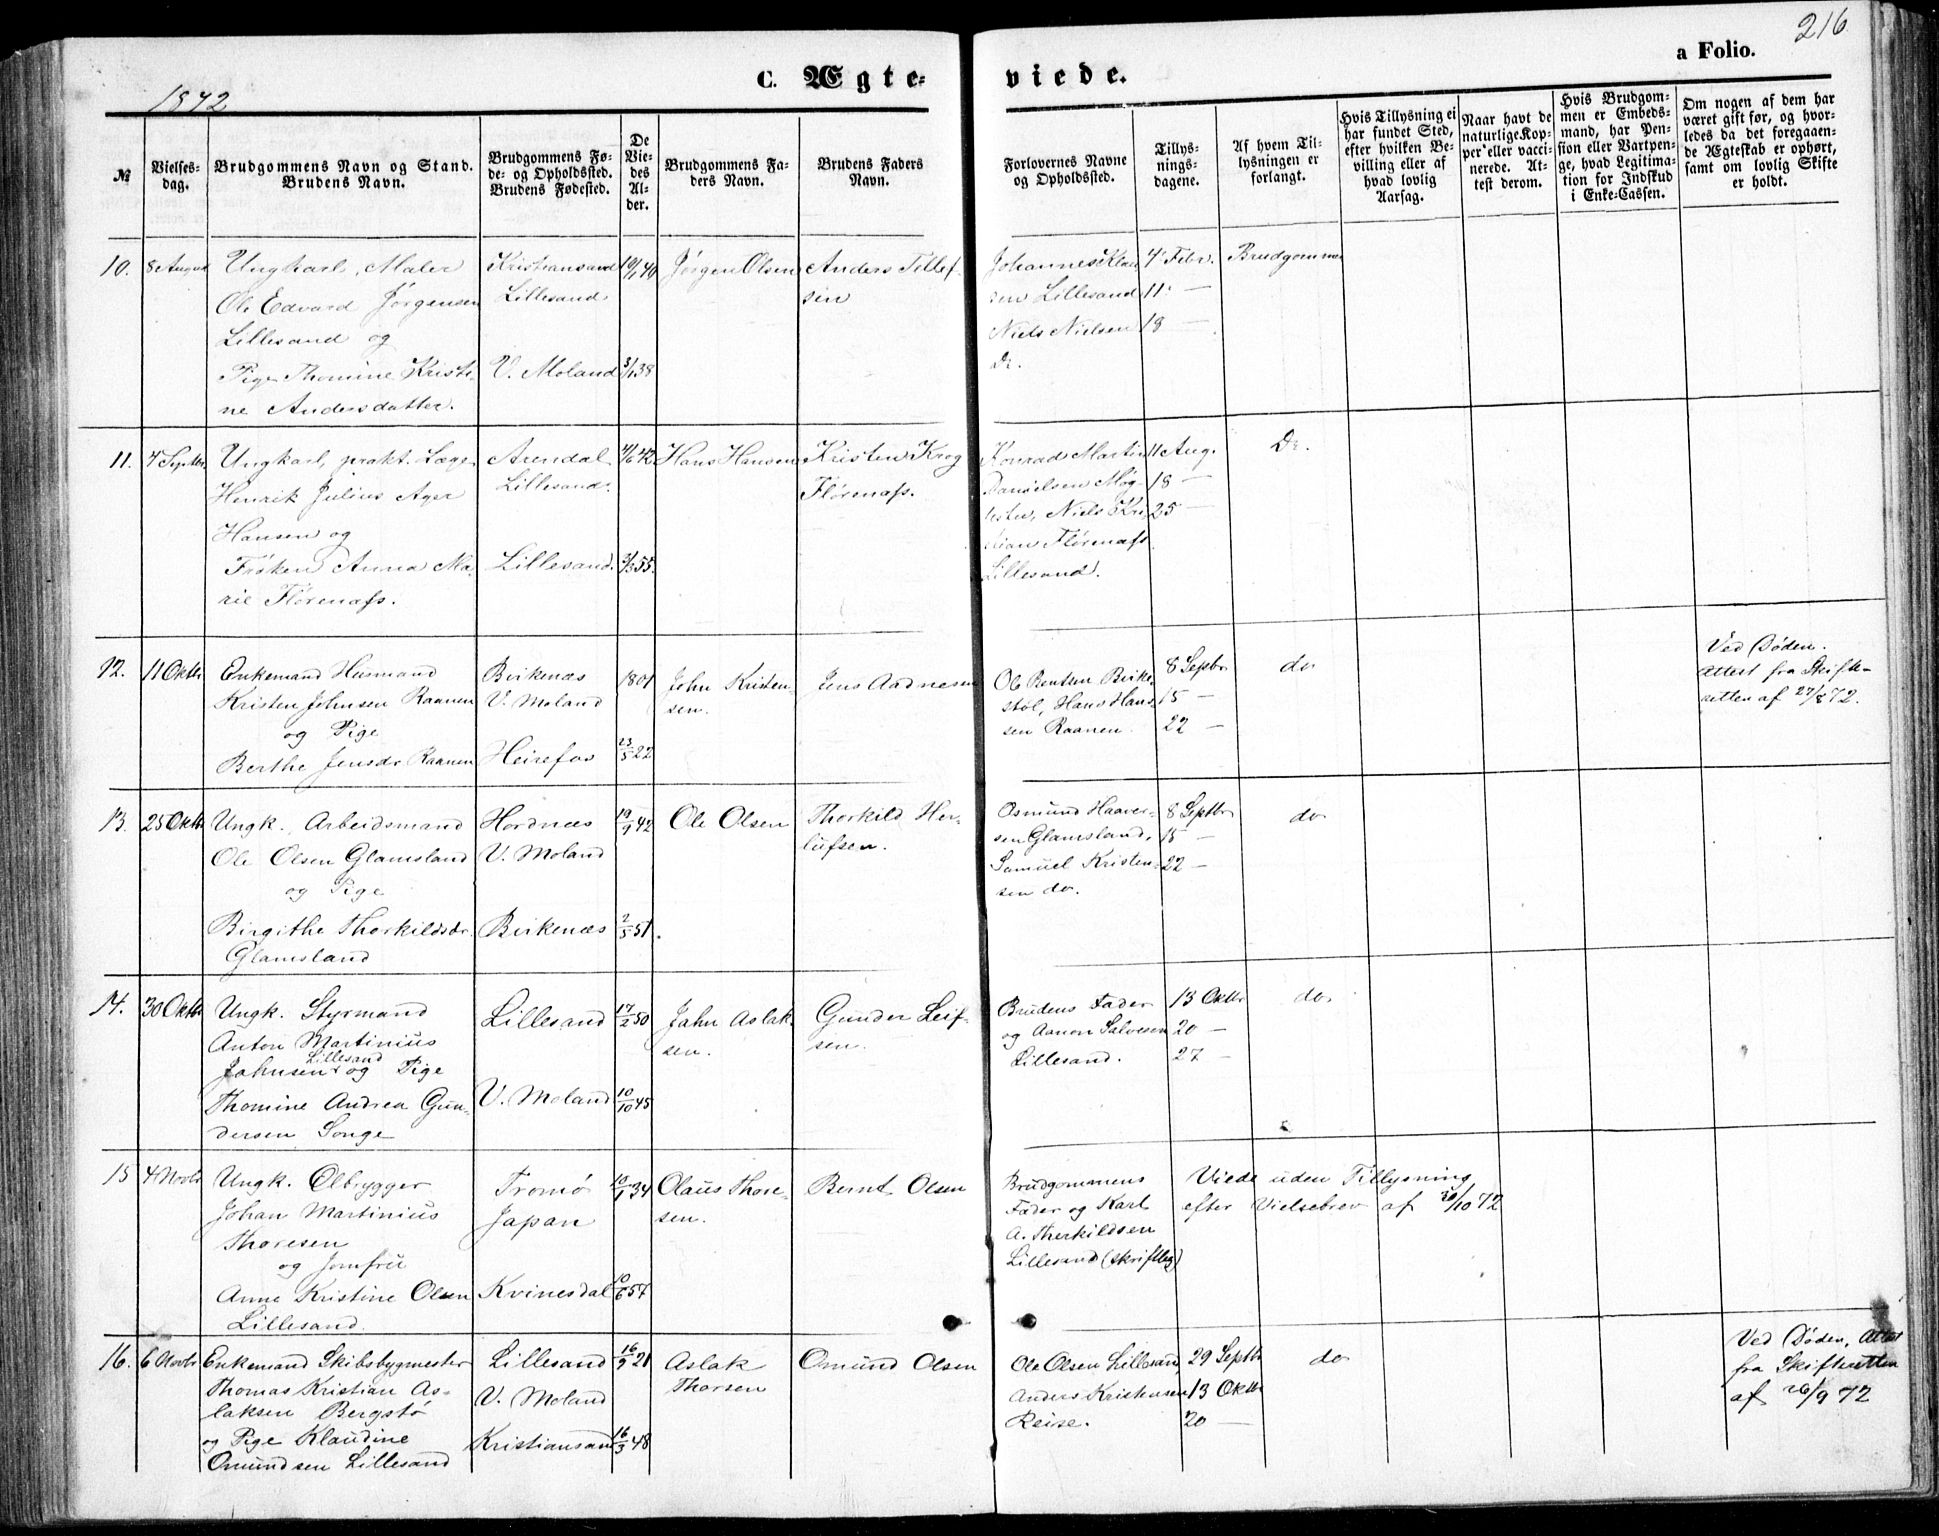 216
a Folio.
C. Ægte-viede.
1872
№
Vielses-
dag.
Brudgommens Navn og Stand.
Brudens Navn.
Brudgommens Fø-
de- og Opholdssted.
Brudens Fødested.
De
Vie-
des
Al-
der.
Brudgommens Fa-
ders Navn.
Brudens Faders
Navn.
Forlovernes Navne
og Opholdssted.
Tillys-
nings-
dagene.
Af hvem Til-
lysningen er
forlangt.
Hvis Tillysning ei
har fundet Sted,
efter hvilken Be-
villing eller af
hvad lovlig
Aarsag.
Naar havt de
naturlige Kop-
per eller vacci-
nerede. At-
test derom.
Hvis Brudgom-
men er Embeds-
mand, har Pen-
sion eller Vartpen-
ge, hvad Legitima-
tion for Indskud
i Enke-Cassen.
Om nogen af dem har
været gift før, og hvor-
ledes da det foregaaen-
de Ægteskab er ophørt,
samt om lovlig Skifte
er holdt.
10. 8 August Ungkarl, Maler Kristiansand 40 Jørgen Olsen Anders Tellef- Johannes Klau 4 Febr. Brudgommen
Ole Edvard Jørgensen Lillesand sen sen Lillesand 11 —
Lillesand og Niels Nielsen 18 —
Pige Thomine Kristi- V. Moland 38 Do.
ne Andersdatter.
11. 4 Septbr Ungkarl, prakt. Læge Arendal 42 Hans Hansen Kristen Krog Konrad Martin 11 Aug. Do.
Henrik Julius Ager Lillesand. Flørenass. Danielsen Møg- 18 —
Hansen og lestu, Niels Kri- 25 —
Frøken Anna Ma- Lillesand. 2/3 55. stian Flørenass
rie Flørenass. Lillesand.
12. 11 Oktbr Enkemand Husmand Birkenæs 1801 John Kristen- Jens Aadnesen Ole Bentsen Birke- 8 Septbr do Ved Døden.
Kristen Johnsen Raanen V. Moland sen. støl, Hans Hans- 15 — Attest fra Skifte-
og Pige sen Raanen. 22 — retten af 27/8 72.
Berthe Jensdr Raanen Heirefos 23/5 22
13. 25 Oktbr Ungk. Arbeidsmand Hordnæs 19/9 42 Ole Olsen Thorkild Her- Osmund Haaver- 8 Septbr do
Ole Olsen Glamsland V. Moland lufsen. sen Glamsland, 15 —
og Pige Samuel Kristen- 22 —
sen do.
Birgithe Thorkildsdr. Birkenæs 2/5 51.
Glamsland
14. 30 Oktbr Ungk. Styrmand Lillesand 17/2 50 Jahn Aslak- Gunder Leif- Brudens Fader 13 Oktbr do
Anton Martinius sen. sen. og Aanon Salvesen 20 —
Lillesand
Jahnsen og Pige Lillesand. 27 —
Thomine Andrea Gun- V. Moland 10/10 45
dersen Songe
15 4 Novbr Ungk. Ølbrygger Tromø 10/1 34 Olaus Thore- Bernt Olsen Brudgommens Viede uden Tillysning
Johan Martinius Japan sen. Fader og Karl efter Vielsebrev af 30/10 72
Thoresen A. Therkildsen
og Jomfru Lillesand (skriftlig)
Anne Kristine Olsen Kvinesdal 10/6 57
Lillesand.
16. 6 Novbr Enkemand Skibsbygmester Lillesand 16/9 21 Aslak Omund Olsen Ole Olsen Lillesand, 29 Septbr do Ved Døden, Attest
Thomas Kristian As- V. Moland Thorsen Anders Kristensen 13 Oktbr fra Skifteretten
laksen Bergstø Reise. 20 — af 26/9 72
og Pige Klaudine Kristiansand 16/3 48
Omundsen Lillesand